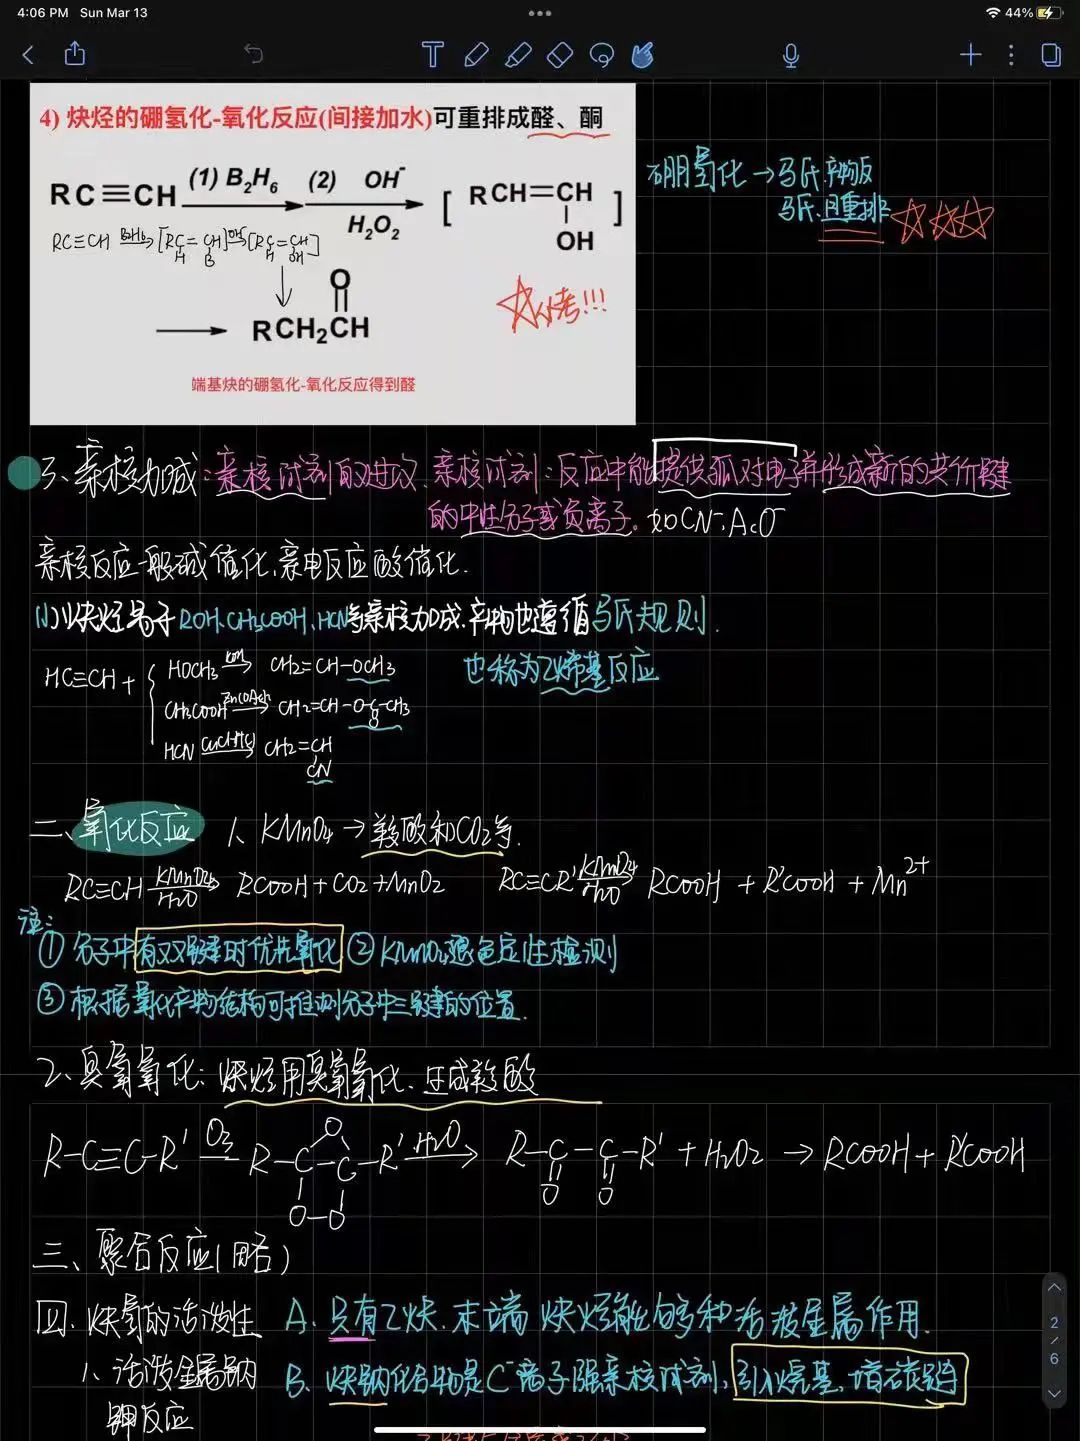 4:06 PM Sun Mar 13
44%
4) 炔烃的硼氢化-氧化反应(间接加水)可重排成醛、酮
RC≡CH (1) B₂H₆ (2) OH⁻ H₂O₂ [RCH=CH OH]
RC≡CH B₂H₆ [RC=CH H B] OH⁻ [RC=CH H OH]
硼氢化→马氏产物反
马氏.且重排
RCH₂CH O
必考!!!
端基炔的硼氢化-氧化反应得到醛
3、亲核加成:亲核试剂的进攻、亲核试剂:反应中能提供孤对电子并形成新的共价键
的中性分子或负离子。如CN⁻、AcO⁻
亲核反应一般碱催化,亲电反应酸催化.
(1)炔烃易于ROH、CH₃COOH、HCN等亲核加成、产物也遵循马氏规则.
也称为乙烯基反应
HC≡CH + { HOCH₃ KOH → CH₂=CH-OCH₃
CH₃COOH Zn(OAc)₂ → CH₂=CH-O-C-CH₃ O
HCN → CH₂=CH CN
二、氧化反应 1、KMnO₄→羧酸和CO₂等.
RC≡CH KMnO₄ H₂O → RCOOH+CO₂+MnO₂ RC≡CR' KMnO₄ H₂O → RCOOH + R'COOH + Mn²⁺
注:
① 分子中有双键时优先氧化 ② KMnO₄褪色定性检测
③ 根据氧化产物结构可推测分子中三键的位置.
2、臭氧氧化:炔烃用臭氧氧化、生成羧酸
R-C≡C-R' O₃ R-C-C-R' O O-O H₂O → R-C-C-R' O O + H₂O₂ → RCOOH + R'COOH
三、聚合反应(略)
四.炔氢的活泼性 A.只有乙炔、末端炔烃能够和活泼金属作用.
1、活泼金属钠 B、炔钠化合物是C⁻离子强亲核试剂,引入烷基、增碳链
钾反应
2
/
6